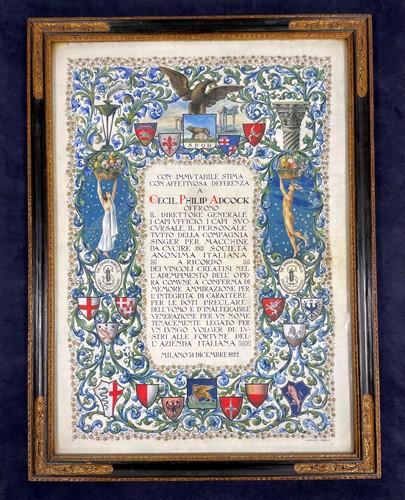 S.P.Q.R.
CON IMMVTABILE STIMA
CON AFFETTVOSA DEFERENZA
A
CECIL PHILIP ADCOCK
OFFRONO
IL DIRETTORE GENERALE
I CAPI VFFICIO, I CAPI SVC-
CVRSALE, IL PERSONALE
TVTTO DELLA COMPAGNIA
SINGER PER MACCHINE
DA CVCIRE SOCIETÀ
ANONIMA ITALIANA
A RICORDO
DEI VINCOLI CREATISI NEL
L'ADEMPIMENTO DELL'OPE-
RA COMVNE A CONFERMA DI
MEMORE AMMIRAZIONE PER
L'INTEGRITÀ DI CARATTERE
PER LE DOTI PRECLARE
DELL'VOMO E D'INALTERABILE
VENERAZIONE PER VN NOME
TENACEMENTE LEGATO PER
VN LVNGO VOLGER DI LV-
STRI ALLE FORTVNE DEL-
L'AZIENDA ITALIANA
MILANO 31 DICEMBRE 1922